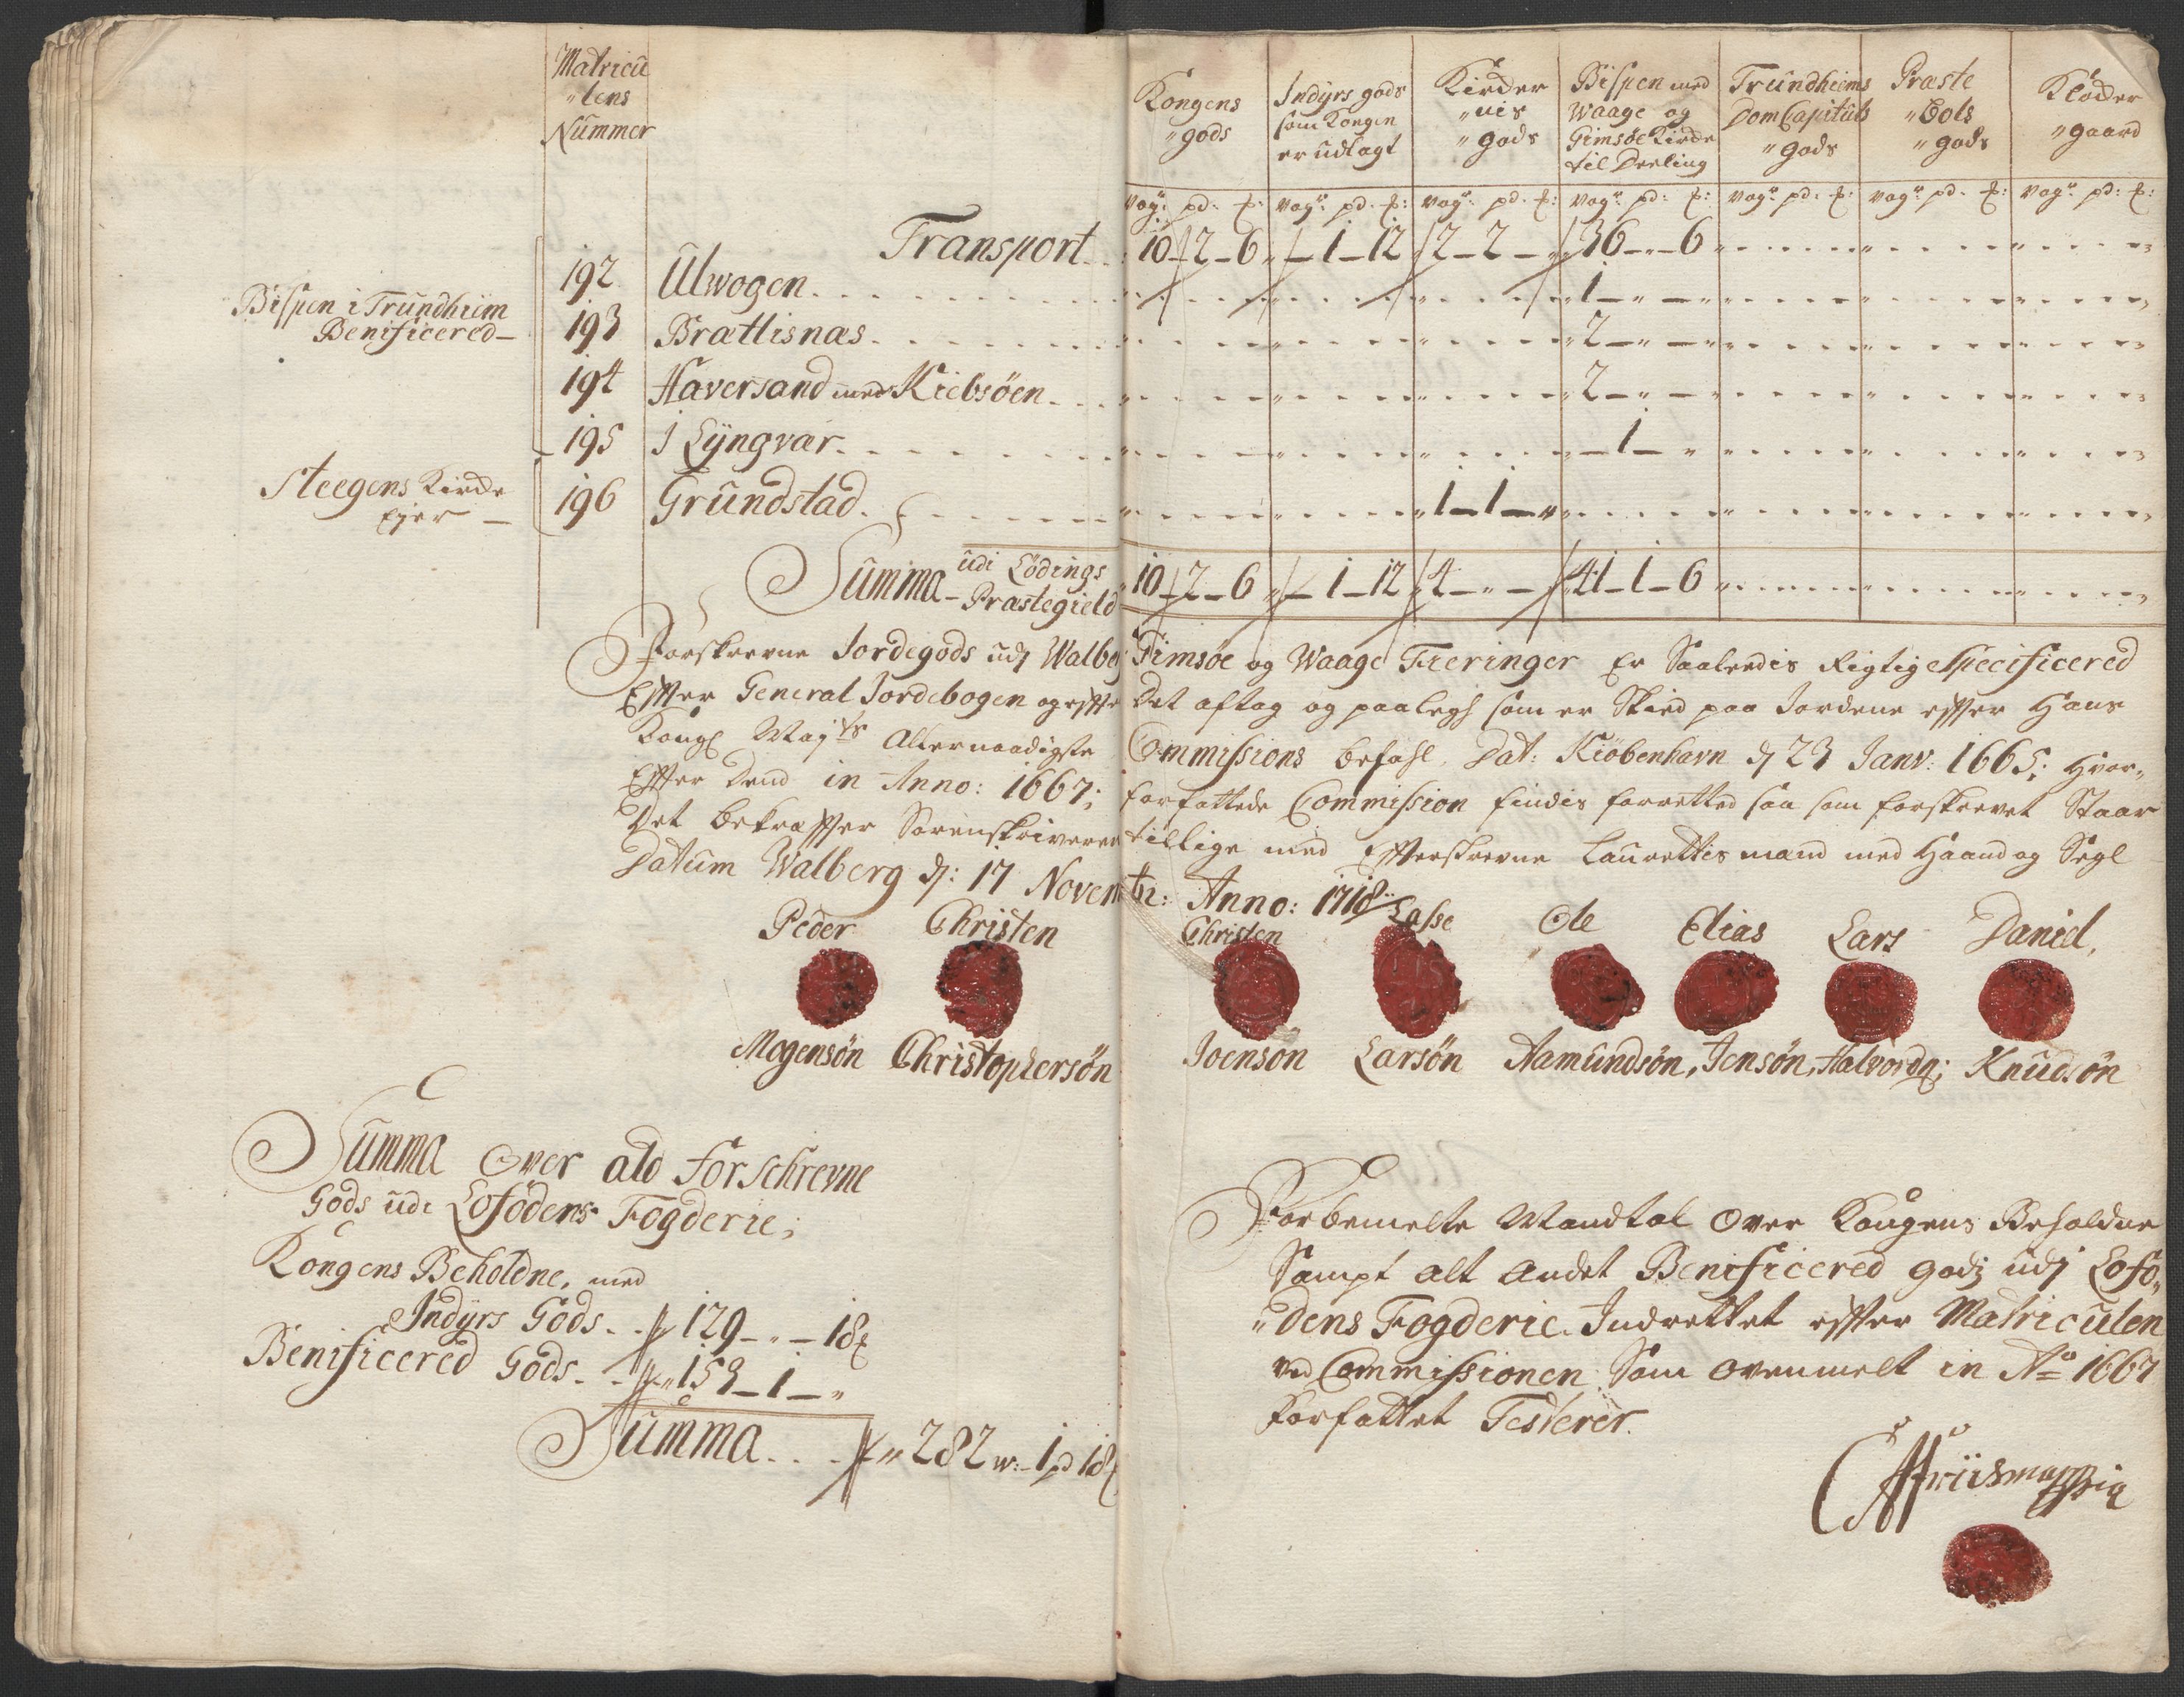 Matricu
"lens
Nummer
Kongens
"gods
Indyrs gods
som Kongen
er udlagt
Kircker
"nis
"gods
Bispen med
Waage og
Gimsøe Kircke
til Deeling
Trundheims
Dom Capituls
"gods
Præste
"Bols
"gods
Klocker
"gaard
vogr: pd: ℔: vogr: pd: ℔: vogr: pd: ℔: vogr: pd: ℔: vogr: pd: ℔: vogr: pd: ℔: vogr: pd: ℔:
Transport.. 10-2-6 "-1-12 2-2-" 36-"-6
Bispen i Trundhiim
Benificered-
192 Ulwogen. 1-"-
193 Brættisnæs. 2-"-
194 Haversand med Kiebsöen. 2-"-
195 I Lyngvær. -1-"
Steegens Kircke
Ejer -
196 Grundstad. 1-1-"
Summa- udi Lödings
Præstegield 10-2-6 "-1-12 4-"- 41-1-6
Forskrevne Jordegods udj Walberg Gimsøe og Waage Fieringer Er Saaledis Rigtig Specificered
Efter General Jordebogen og efter Det aftag og paalegh som er Skied paa Jordene efter Hans
Kongl Maÿts Allernaadigste Commissions befahl, Dat: Kiöbenhavn dj 23 Janv: 1665; Hvor"
Efter Dend in Anno: 1667; forfattede Commission findis forretted saa som forskrevet Staar
Det bekræfter Sorenskriveren tillige med Efterskrevne Laurettismænd med Haand og Segl
Datum Walberg dj: 17 Novembr: Anno: 1718..
Peder Christen Christen Lasse Ole Elias Lars Daniel,
Mogensön Christophersön Joenson Larsön Aamundsön, Jensön, Halvordn; Knudsön
Summa Over ald forschrevne
Gods udi Lofödens Fogderie;
Kongens Beholdne, med
Indyrs Gods. . 129-"-18℔
Benificered Gods. - "153-1-"
Summa. . . " 282 w:-1 pd 18℔
Forbemelte Mandtal Over Kongens Beholdne
Sampt alt Andet Benificered godz udj Lofö"
"dens Fogderie. Indrettet efter Matriculen
ved Commissionen Som ovenmelt in Ao 1667
Forfattet Testerer.